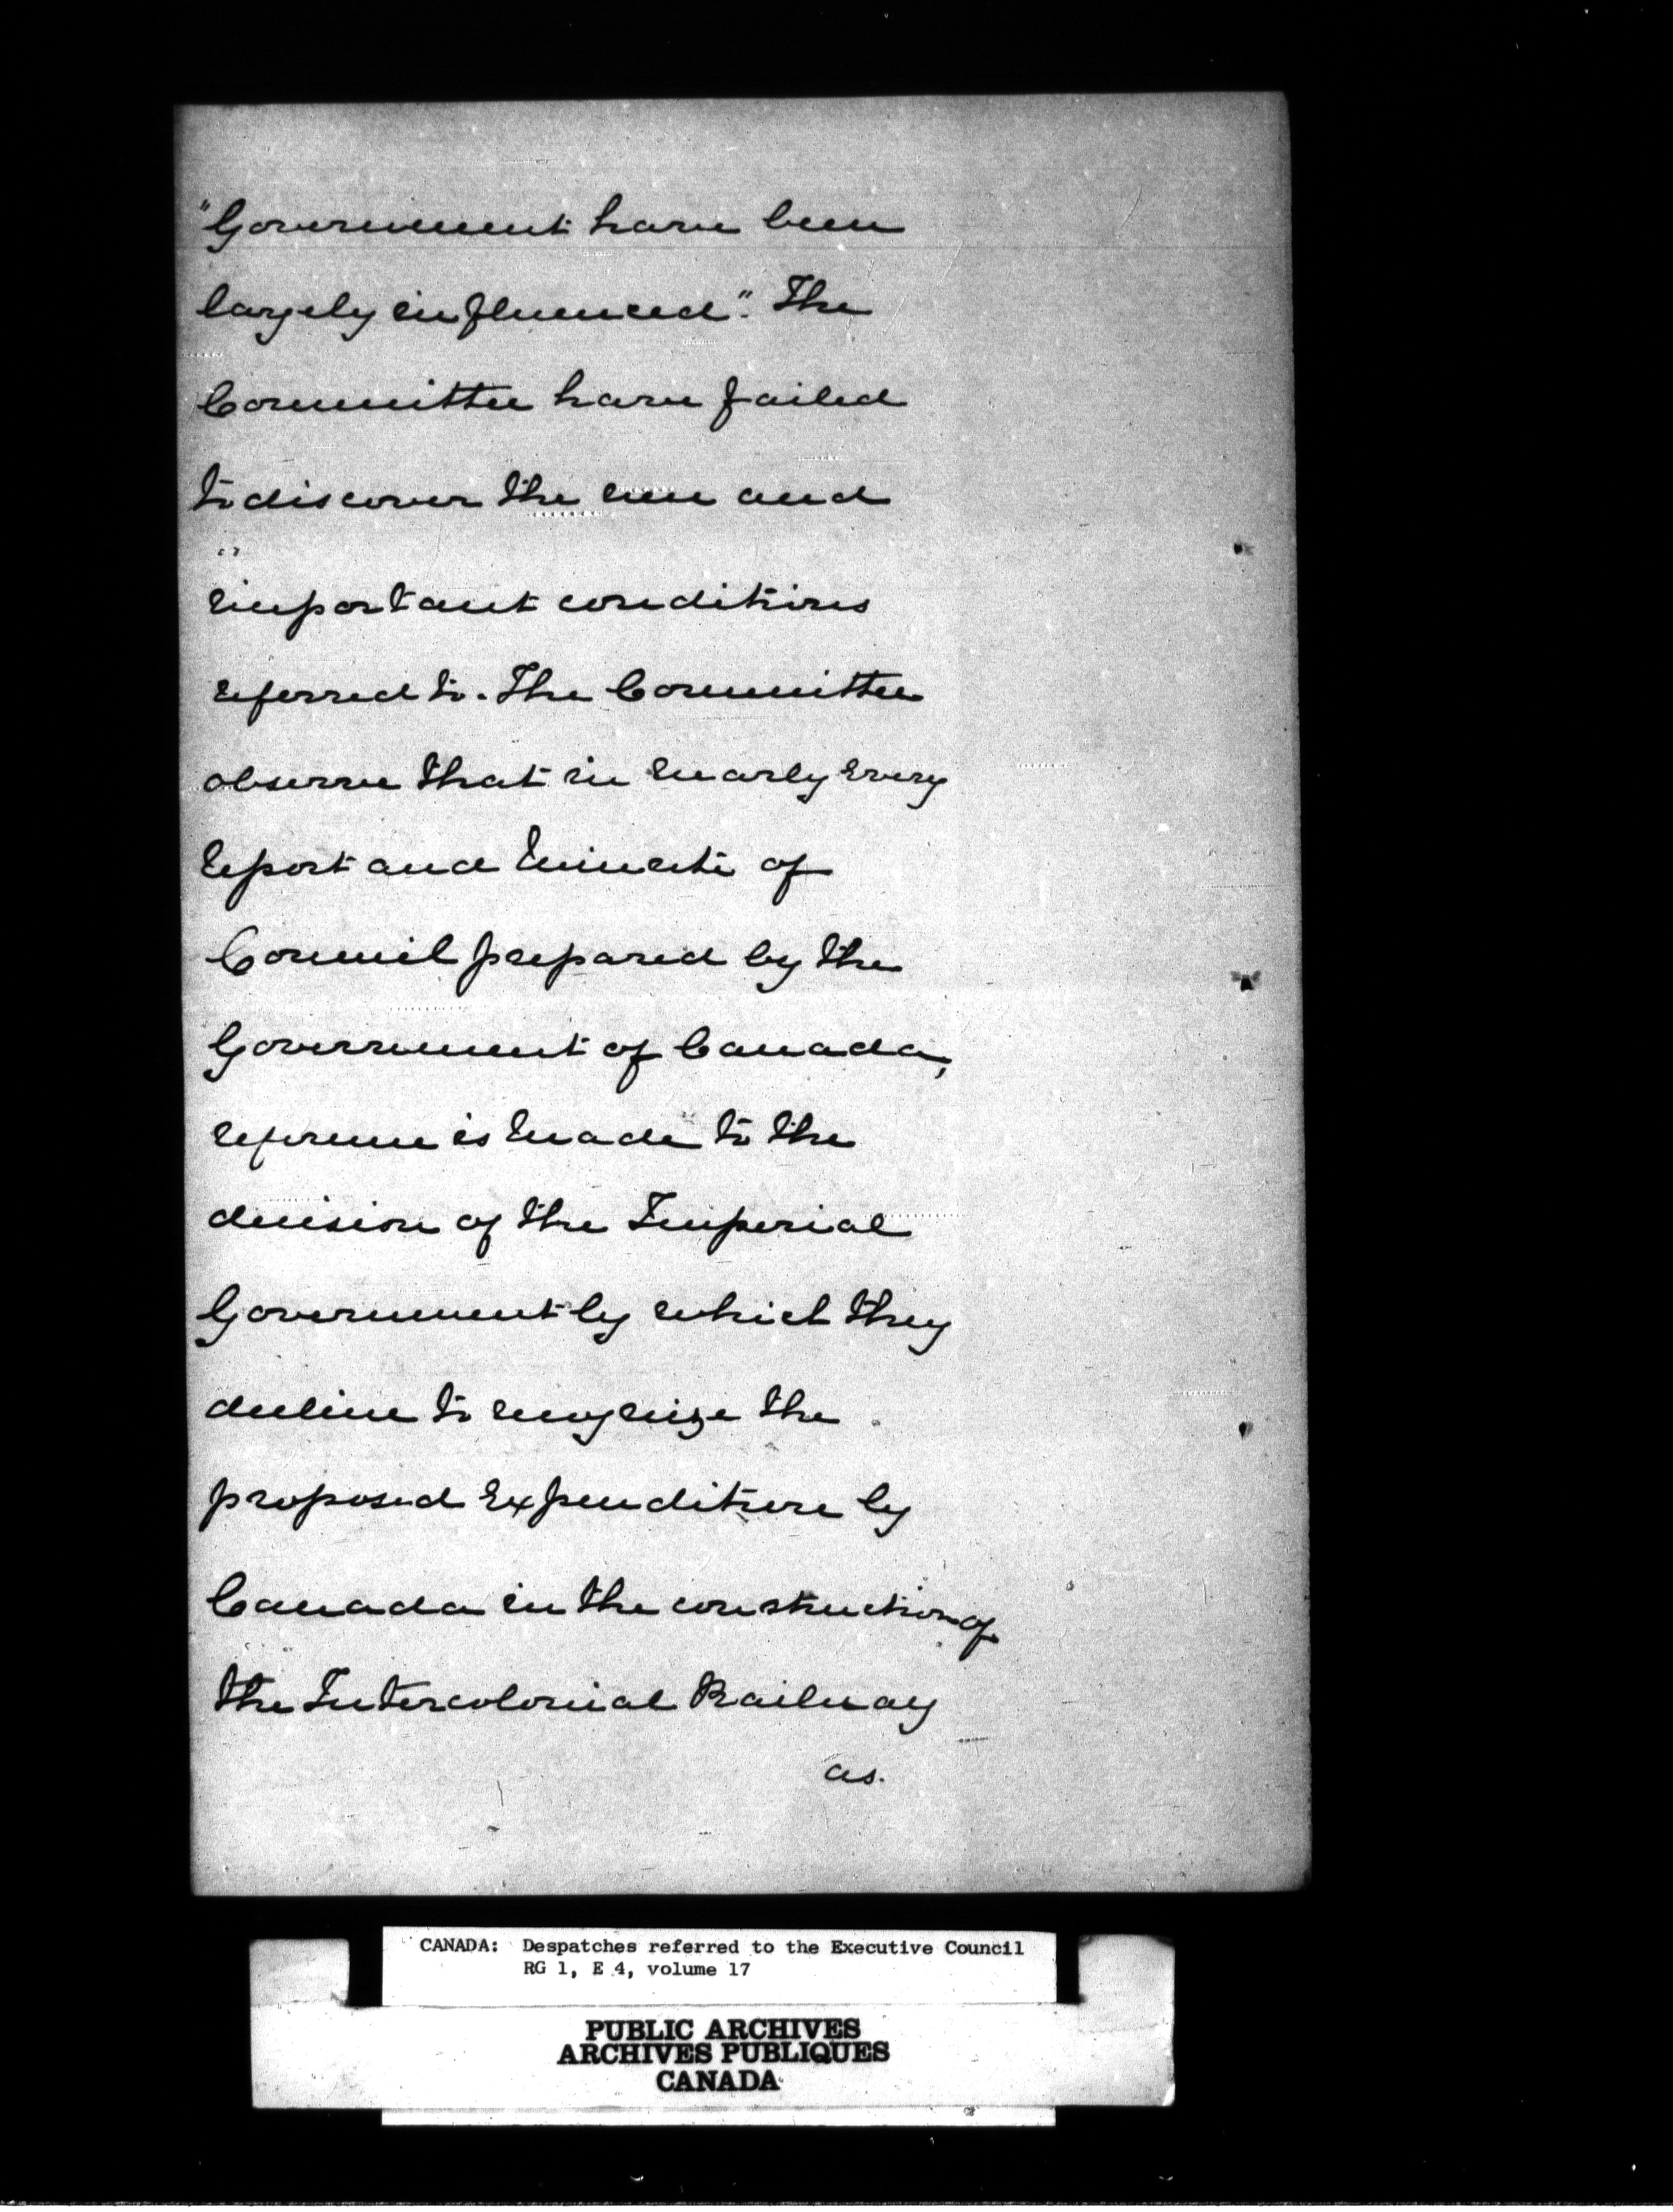 "Government have been
largely influenced". The
Committee have failed
to discover the new and
important conditions
referred to. The Committee
observe that in nearly every
report and minute of
Council prepared by the
Government of Canada,
reference is made to the
decision of the Imperial
Government by which they
decline to recognize the
proposed expenditure by
Canada in the construction of
the Intercolonial Railway
as.
CANADA: Despatches referred to the Executive Council
RG 1, E 4, volume 17
PUBLIC ARCHIVES
ARCHIVES PUBLIQUES
CANADA